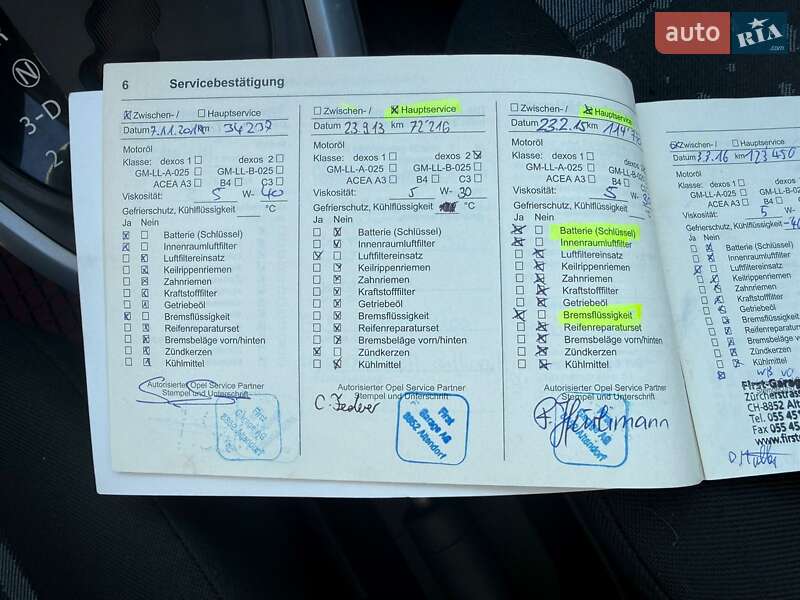 auto RIA.com
N
3-D
2
6 Servicebestätigung
Zwischen- / Hauptservice
Datum 7.11.2011 km 34237
Motoröl
Klasse: dexos 1 dexos 2
GM-LL-A-025 GM-LL-B-025
ACEA A3 B4 C3
Viskosität: 5 W- 40
Gefrierschutz, Kühlflüssigkeit °C
Ja Nein
Batterie (Schlüssel)
Innenraumluftfilter
Luftfiltereinsatz
Keilrippenriemen
Zahnriemen
Kraftstofffilter
Getriebeöl
Bremsflüssigkeit
Reifenreparaturset
Bremsbeläge vorn/hinten
Zündkerzen
Kühlmittel
Autorisierter Opel Service Partner
Stempel und Unterschrift
First
Garage AG
8852 Altendorf
Zwischen- / Hauptservice
Datum 23.9.13 km 72'216
Motoröl
Klasse: dexos 1 dexos 2
GM-LL-A-025 GM-LL-B-025
ACEA A3 B4 C3
Viskosität: 5 W- 30
Gefrierschutz, Kühlflüssigkeit °C
Ja Nein
Batterie (Schlüssel)
Innenraumluftfilter
Luftfiltereinsatz
Keilrippenriemen
Zahnriemen
Kraftstofffilter
Getriebeöl
Bremsflüssigkeit
Reifenreparaturset
Bremsbeläge vorn/hinten
Zündkerzen
Kühlmittel
Autorisierter Opel Service Partner
Stempel und Unterschrift
First
Garage AG
8852 Altendorf
Zwischen- / Hauptservice
Datum 23.2.15 km
Motoröl
Klasse: dexos 1 dexos 2
GM-LL-A-025 GM-LL-B-025
ACEA A3 B4 C3
Viskosität: 5 W-
Gefrierschutz, Kühlflüssigkeit
Ja Nein
Batterie (Schlüssel)
Innenraumluftfilter
Luftfiltereinsatz
Keilrippenriemen
Zahnriemen
Kraftstofffilter
Getriebeöl
Bremsflüssigkeit
Reifenreparaturset
Bremsbeläge vorn/hinten
Zündkerzen
Kühlmittel
Autorisierter Opel Service Partner
Stempel und Unterschrift
First
Garage AG
Altendorf
Zwischen- / Hauptservice
Datum 3.3.16 km 123450
Motoröl
Klasse: dexos 1 dexos
GM-LL-A-025 GM-LL-B-0
ACEA A3 B4
Viskosität: 5 W-
Gefrierschutz, Kühlflüssigkeit
Ja Nein
Batterie (Schlüssel)
Innenraumluftfilter
Luftfiltereinsatz
Keilrippenriemen
Zahnriemen
Kraftstofffilter
Getriebeöl
Bremsflüssigkeit
Reifenreparaturset
Bremsbeläge vorn/hint
Zündkerzen
Kühlmittel
First-Garag
Zürcherstrass
CH-8852 Alt
Tel. 055 45
Fax 055 45
www.first